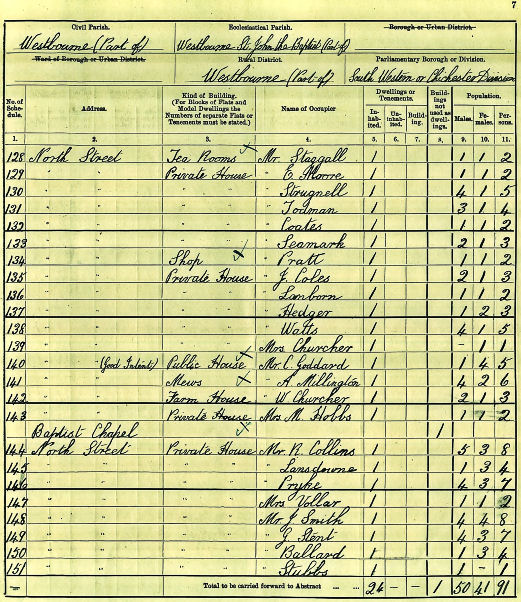 7
Civil Parish. Ecclesiastical Parish. Borough or Urban District.
Westbourne (Part of) Westbourne St. John the Baptist (Part of)
Ward of Borough or Urban District. Rural District. Parliamentary Borough or Division.
Westbourne (Part of) South Western or Chichester Division
No. of Schedule. Address. Kind of Building. (For Blocks of Flats and Model Dwellings the Numbers of separate Flats or Tenements must be stated.) Name of Occupier Dwellings or Tenements. Inhabited. Uninhabited. Building. Buildings not used as dwellings. Population. Males. Females. Persons.
1. 2. 3. 4. 5. 6. 7. 8. 9. 10. 11.
128 North Street Tea Rooms Mr. Staggall 1 1 1 2
129 " " Private House " E. Moore 1 1 1 2
130 " " " " " Strugnell 1 4 1 5
131 " " " " " Todman 1 3 1 4
132 " " " " " Coates 1 1 1 2
133 " " " " " Seamark 1 2 1 3
134 " " Shop " Pratt 1 1 1 2
135 " " Private House " J. Coles 1 2 1 3
136 " " " " " Lamborn 1 1 1 2
137 " " " " " Hedger 1 1 2 3
138 " " " " " Watts 1 4 1 5
139 " " " " Mrs Churcher 1 - 1 1
140 " (Good Intent) Public House Mr. C. Goddard 1 1 4 5
141 " " Mews " A Millington 1 4 2 6
142 " " Farm House " W Churcher 1 2 1 3
143 " " Private House Mrs M. Hobbs 1 1 1 2
Baptist Chapel 1
144 North Street Private House Mr N. Collins 1 5 3 8
145 " " " " " Lansdowne 1 1 3 4
146 " " " " " Pryke 1 4 3 7
147 " " " " Mrs Vollar 1 1 1 2
148 " " " " Mr J Smith 1 4 4 8
149 " " " " " G. Stent 1 4 3 7
150 " " " " " Ballard 1 1 3 4
151 " " " " " Stubbs 1 1 - 1
Total to be carried forward to Abstract ... ... 24 - - 1 50 41 91